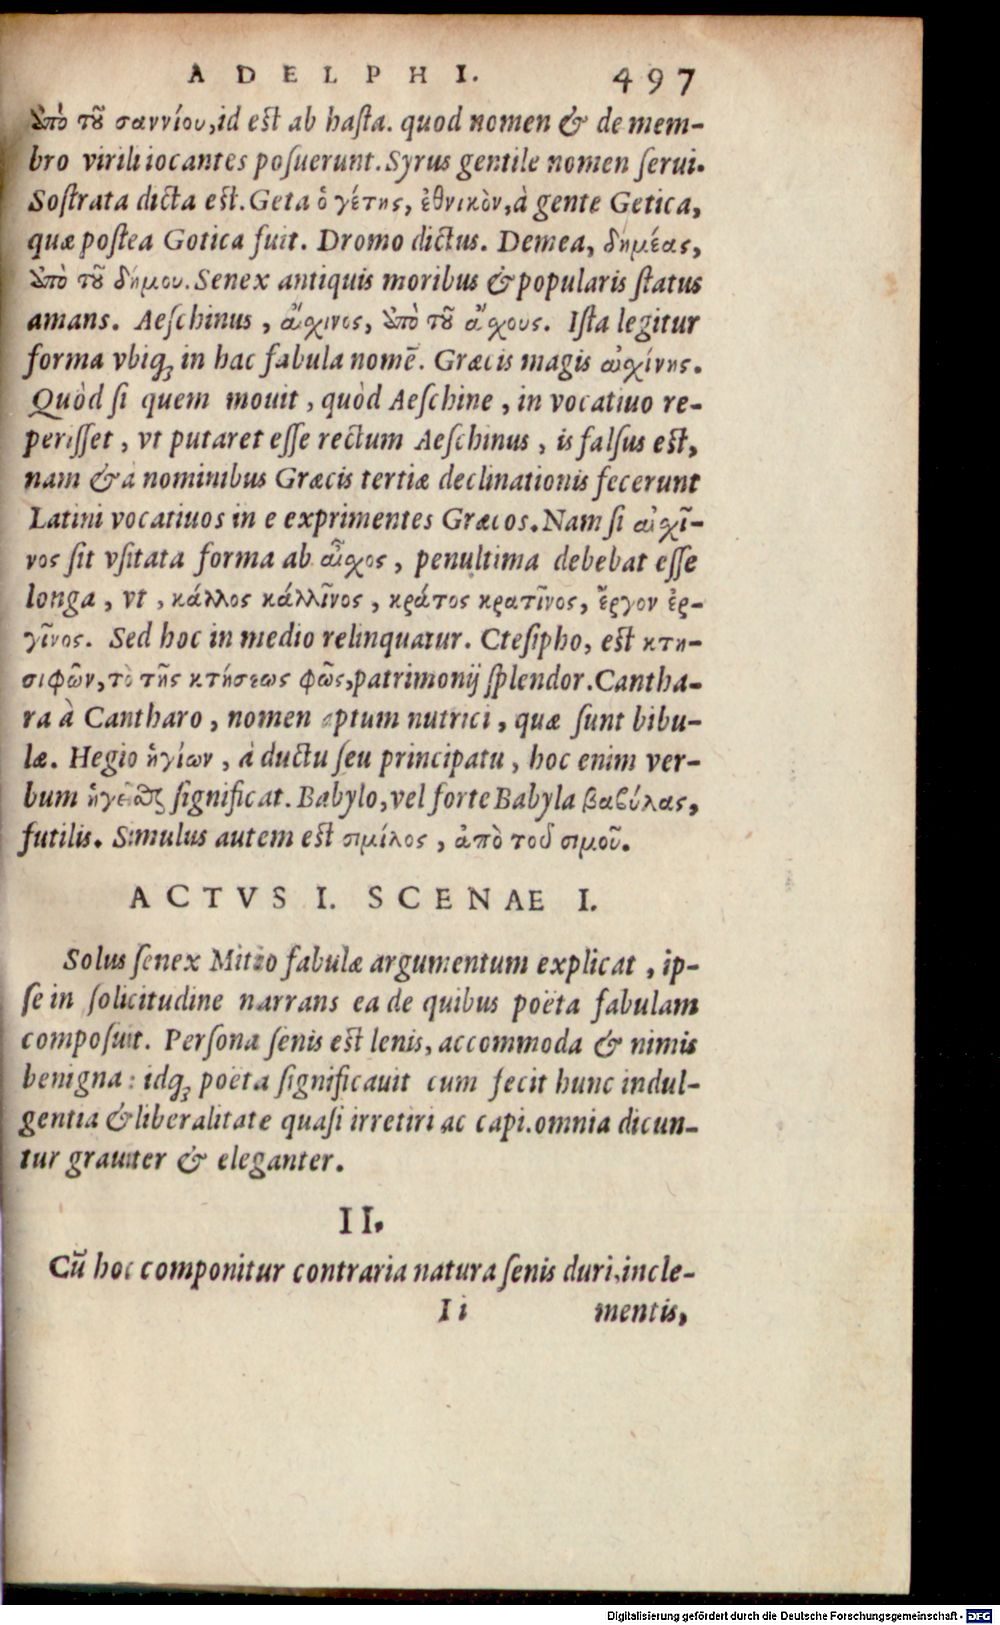 ADELPHI. 497
ἀπὸ τοῦ σαννίου, id est ab hasta. quod nomen & de mem-
bro virili iocantes posuerunt. Syrus gentile nomen serui.
Sostrata dicta est. Geta ὁ γέτης, ἐθνικὸν, à gente Getica,
quæ postea Gotica fuit. Dromo dictus. Demea, δημέας,
ἀπὸ τοῦ δήμου. Senex antiquis moribus & popularis status
amans. Aeschinus, αἴχινος, ἀπὸ τοῦ αἴχους. Ista legitur
forma vbiq; in hac fabula nomē. Græcis magis αἰχίνης.
Quòd si quem mouit, quòd Aeschine, in vocatiuo re-
perisset, vt putaret esse rectum Aeschinus, is falsus est,
nam & à nominibus Græcis tertiæ declinationis fecerunt
Latini vocatiuos in e exprimentes Græcos. Nam si αἰχῖ-
νος sit vsitata forma ab αἶχος, penultima debebat esse
longa, vt, κάλλος κάλλῖνος, κράτος κρατῖνος, ἔργον ἐρ-
γῖνος. Sed hoc in medio relinquatur. Ctesipho, est κτη-
σιφῶν, τὸ τῆς κτήσεως φῶς, patrimonij splendor. Cantha-
ra à Cantharo, nomen aptum nutrici, quæ sunt bibu-
læ. Hegio ἡγίων, à ductu seu principatu, hoc enim ver-
bum ἡγεῖσθαι significat. Babylo, vel forte Babyla βαβύλας,
futilis. Simulus autem est σιμίλος, ἀπὸ τοῦ σιμοῦ.
ACTVS I. SCENAE I.
Solus senex Mitio fabulæ argumentum explicat, ip-
se in solicitudine narrans ea de quibus poëta fabulam
composuit. Persona senis est lenis, accommoda & nimis
benigna: idq; poëta significauit cum fecit hunc indul-
gentia & liberalitate quasi irretiri ac capi. omnia dicun-
tur grauiter & eleganter.
II.
Cū hoc componitur contraria natura senis duri, incle-
Ii mentis,
Digitalisierung gefördert durch die Deutsche Forschungsgemeinschaft - DFG